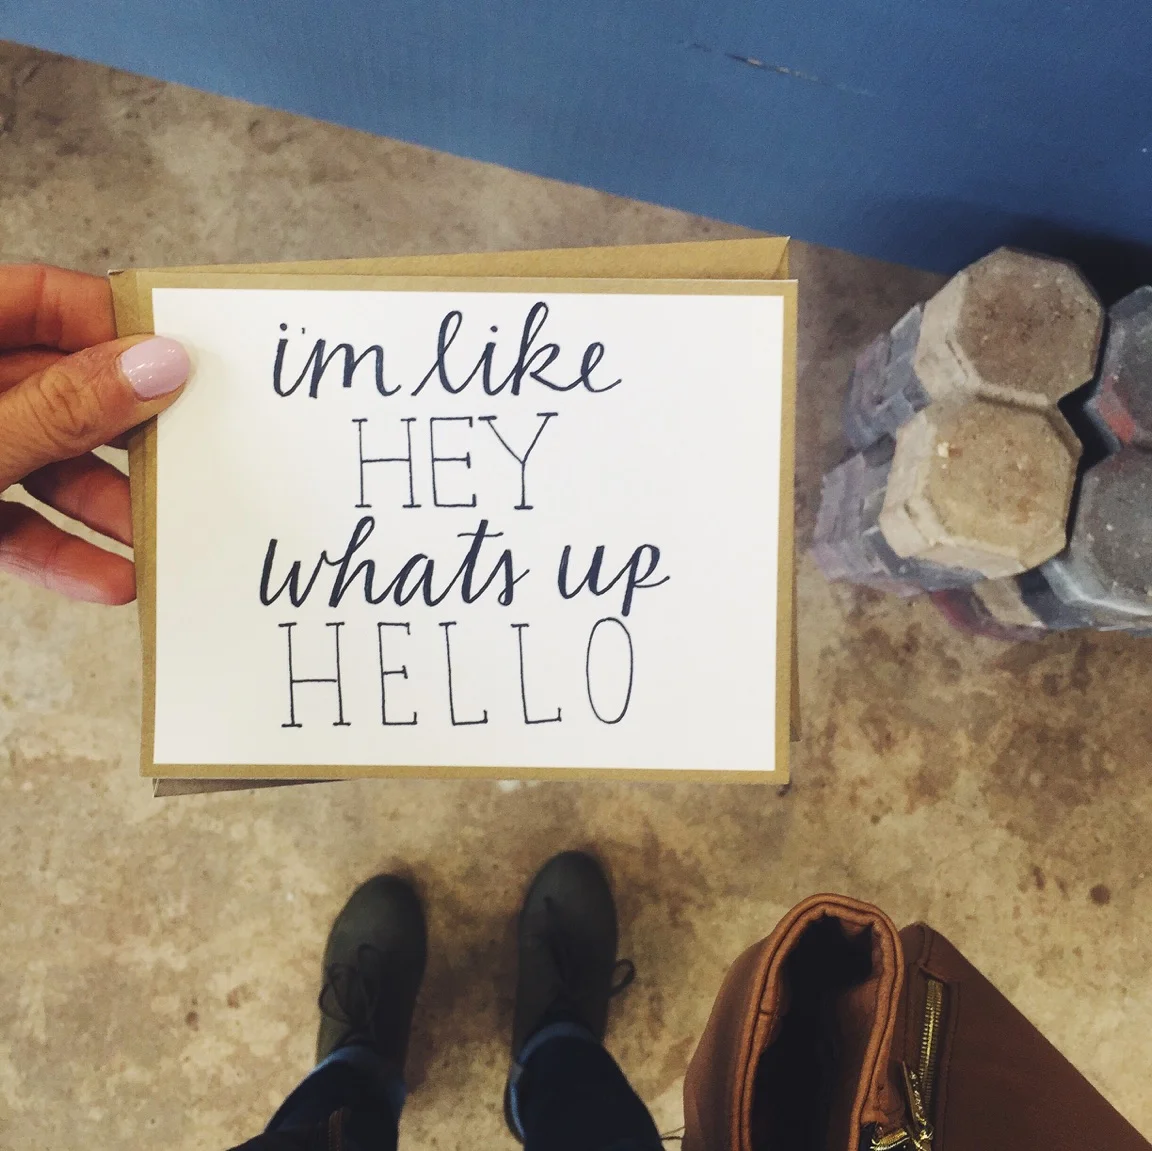 i'm like
HEY
whats up
HELLO